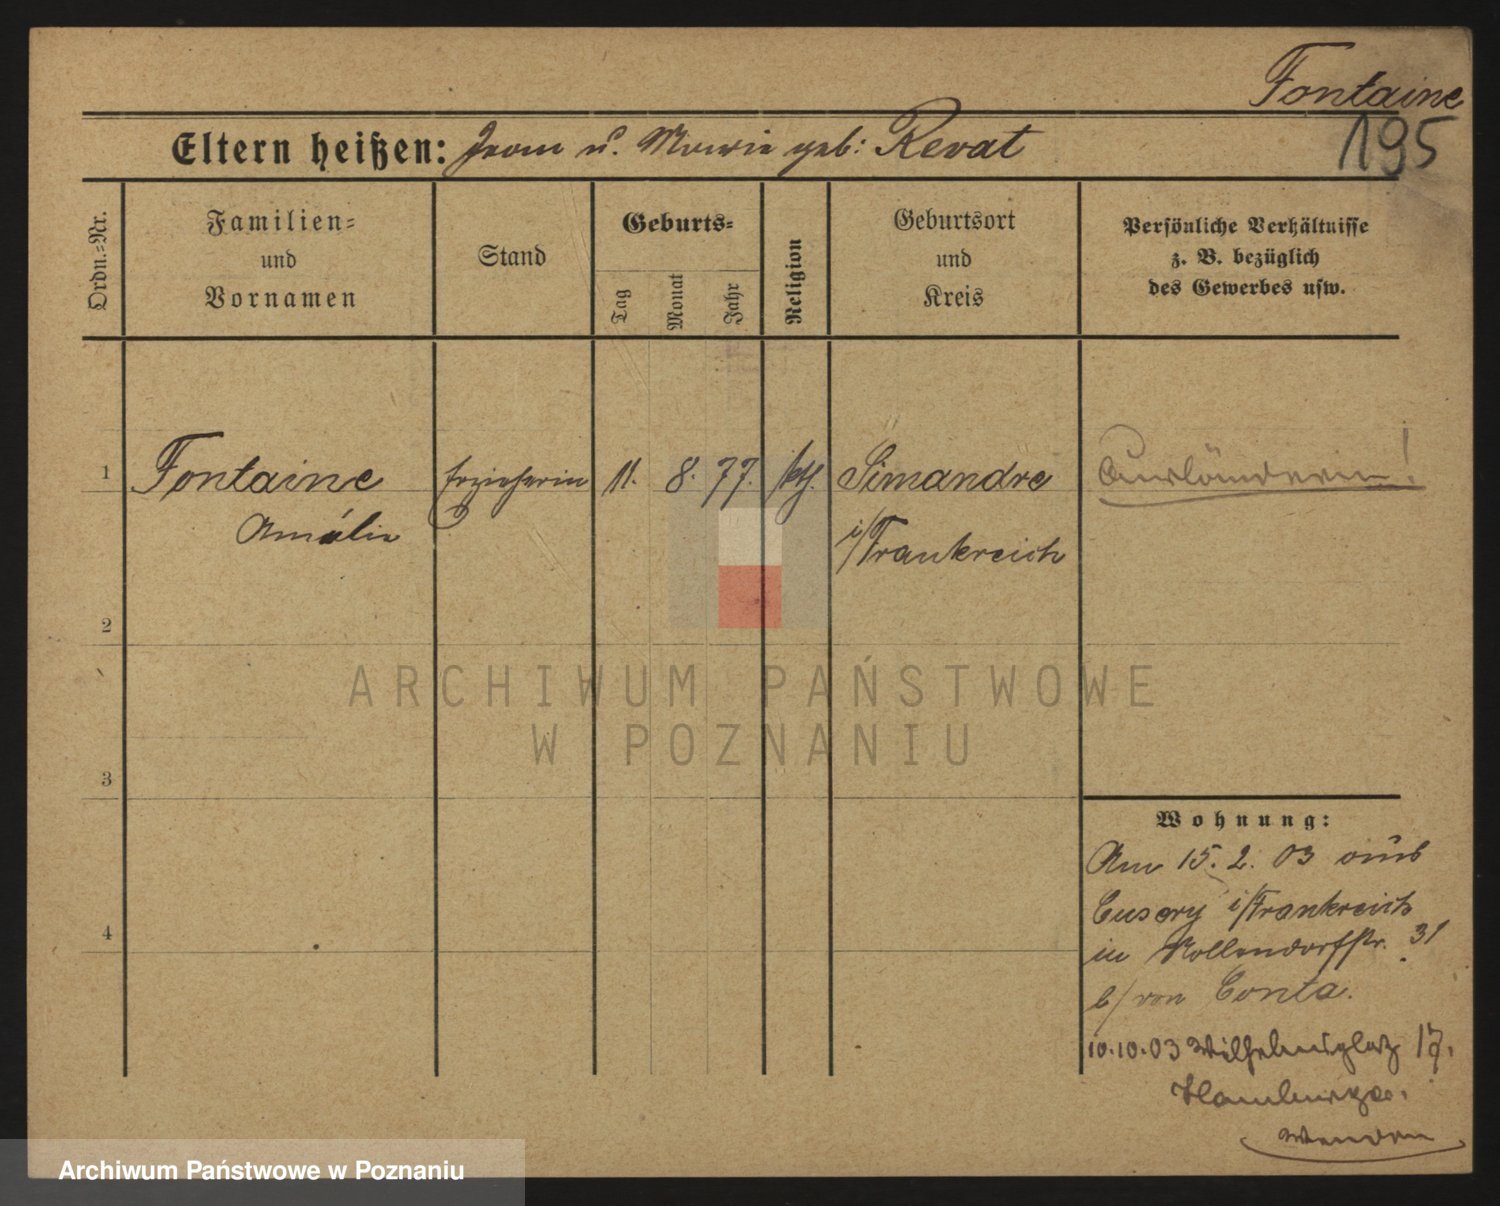 Fontaine
195
Eltern heißen: Jean u. Marie geb: Revat
Ordn.=Nr.
Familien=
und
Vornamen
Stand
Geburts=
Tag
Monat
Jahr
Religion
Geburtsort
und
Kreis
Persönliche Verhältnisse
z. B. bezüglich
des Gewerbes usw.
1 Fontaine Erzieherin 11. 8. 77. kth. Simandre Ausländerin!
Amálie i/Frankreich
2
ARCHIWUM PAŃSTWOWE
W POZNANIU
3
Wohnung:
Am 15. 2. 03 aus
Cusery i/Frankreich
4
in Nollendorfstr. 31
b/ von Conta.
10.10.03 Wilhelmsplatz 17.
Hamburger.
Wenden
Archiwum Państwowe w Poznaniu